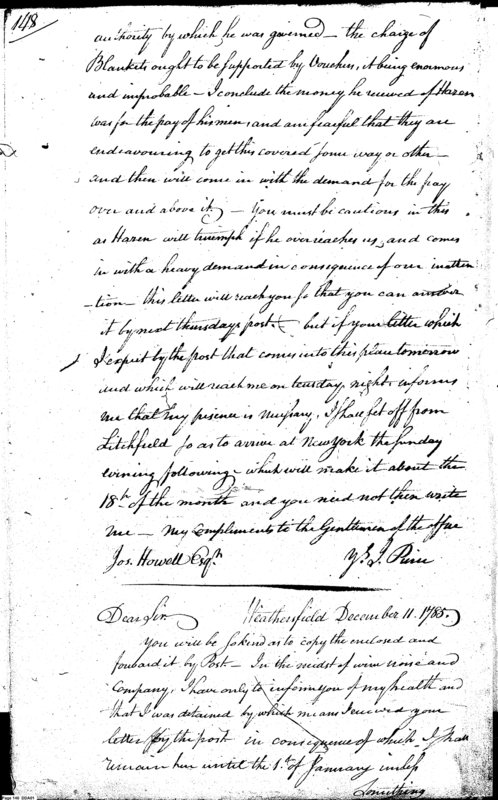 148
authority by which he was governed — the charge of
Blankets ought to be supported by Vouchers, it being enormous
and improbable — I conclude the money he received of Hazen
was for the pay of his men, and am fearful that they are
endeavouring to get this covered some way or other —
and then will come in with the demand for the pay
over and above it — You must be cautious in this
as Hazen will triumph if he over reaches us, and comes
in with a heavy demand in consequence of our inatten
-tion — this letter will reach you so that you can answer
it by next thursdays post. — but if your letter which
I expect by the post that comes into this place tomorrow
and which will reach me on tuesday night informs
me that my presence is necessary, I shall set off from
Litchfield so as to arrive at New York the sunday
evening following which will make it about the
18th of the month and you need not then write
me — my compliments to the Gentlemen of the office
Jos. Howell Esqr. Yrs J. Pierce
Dear Sir. Weathersfield December 11. 1785.
You will be so kind as to copy the enclosed and
forward it by Post — In the midst of wine noise and
Company, I have only to inform you of my health and
that I was detained by which means I received your
letter by the post in consequence of which I shall
remain here until the 1st of January unless
Something
Page 148